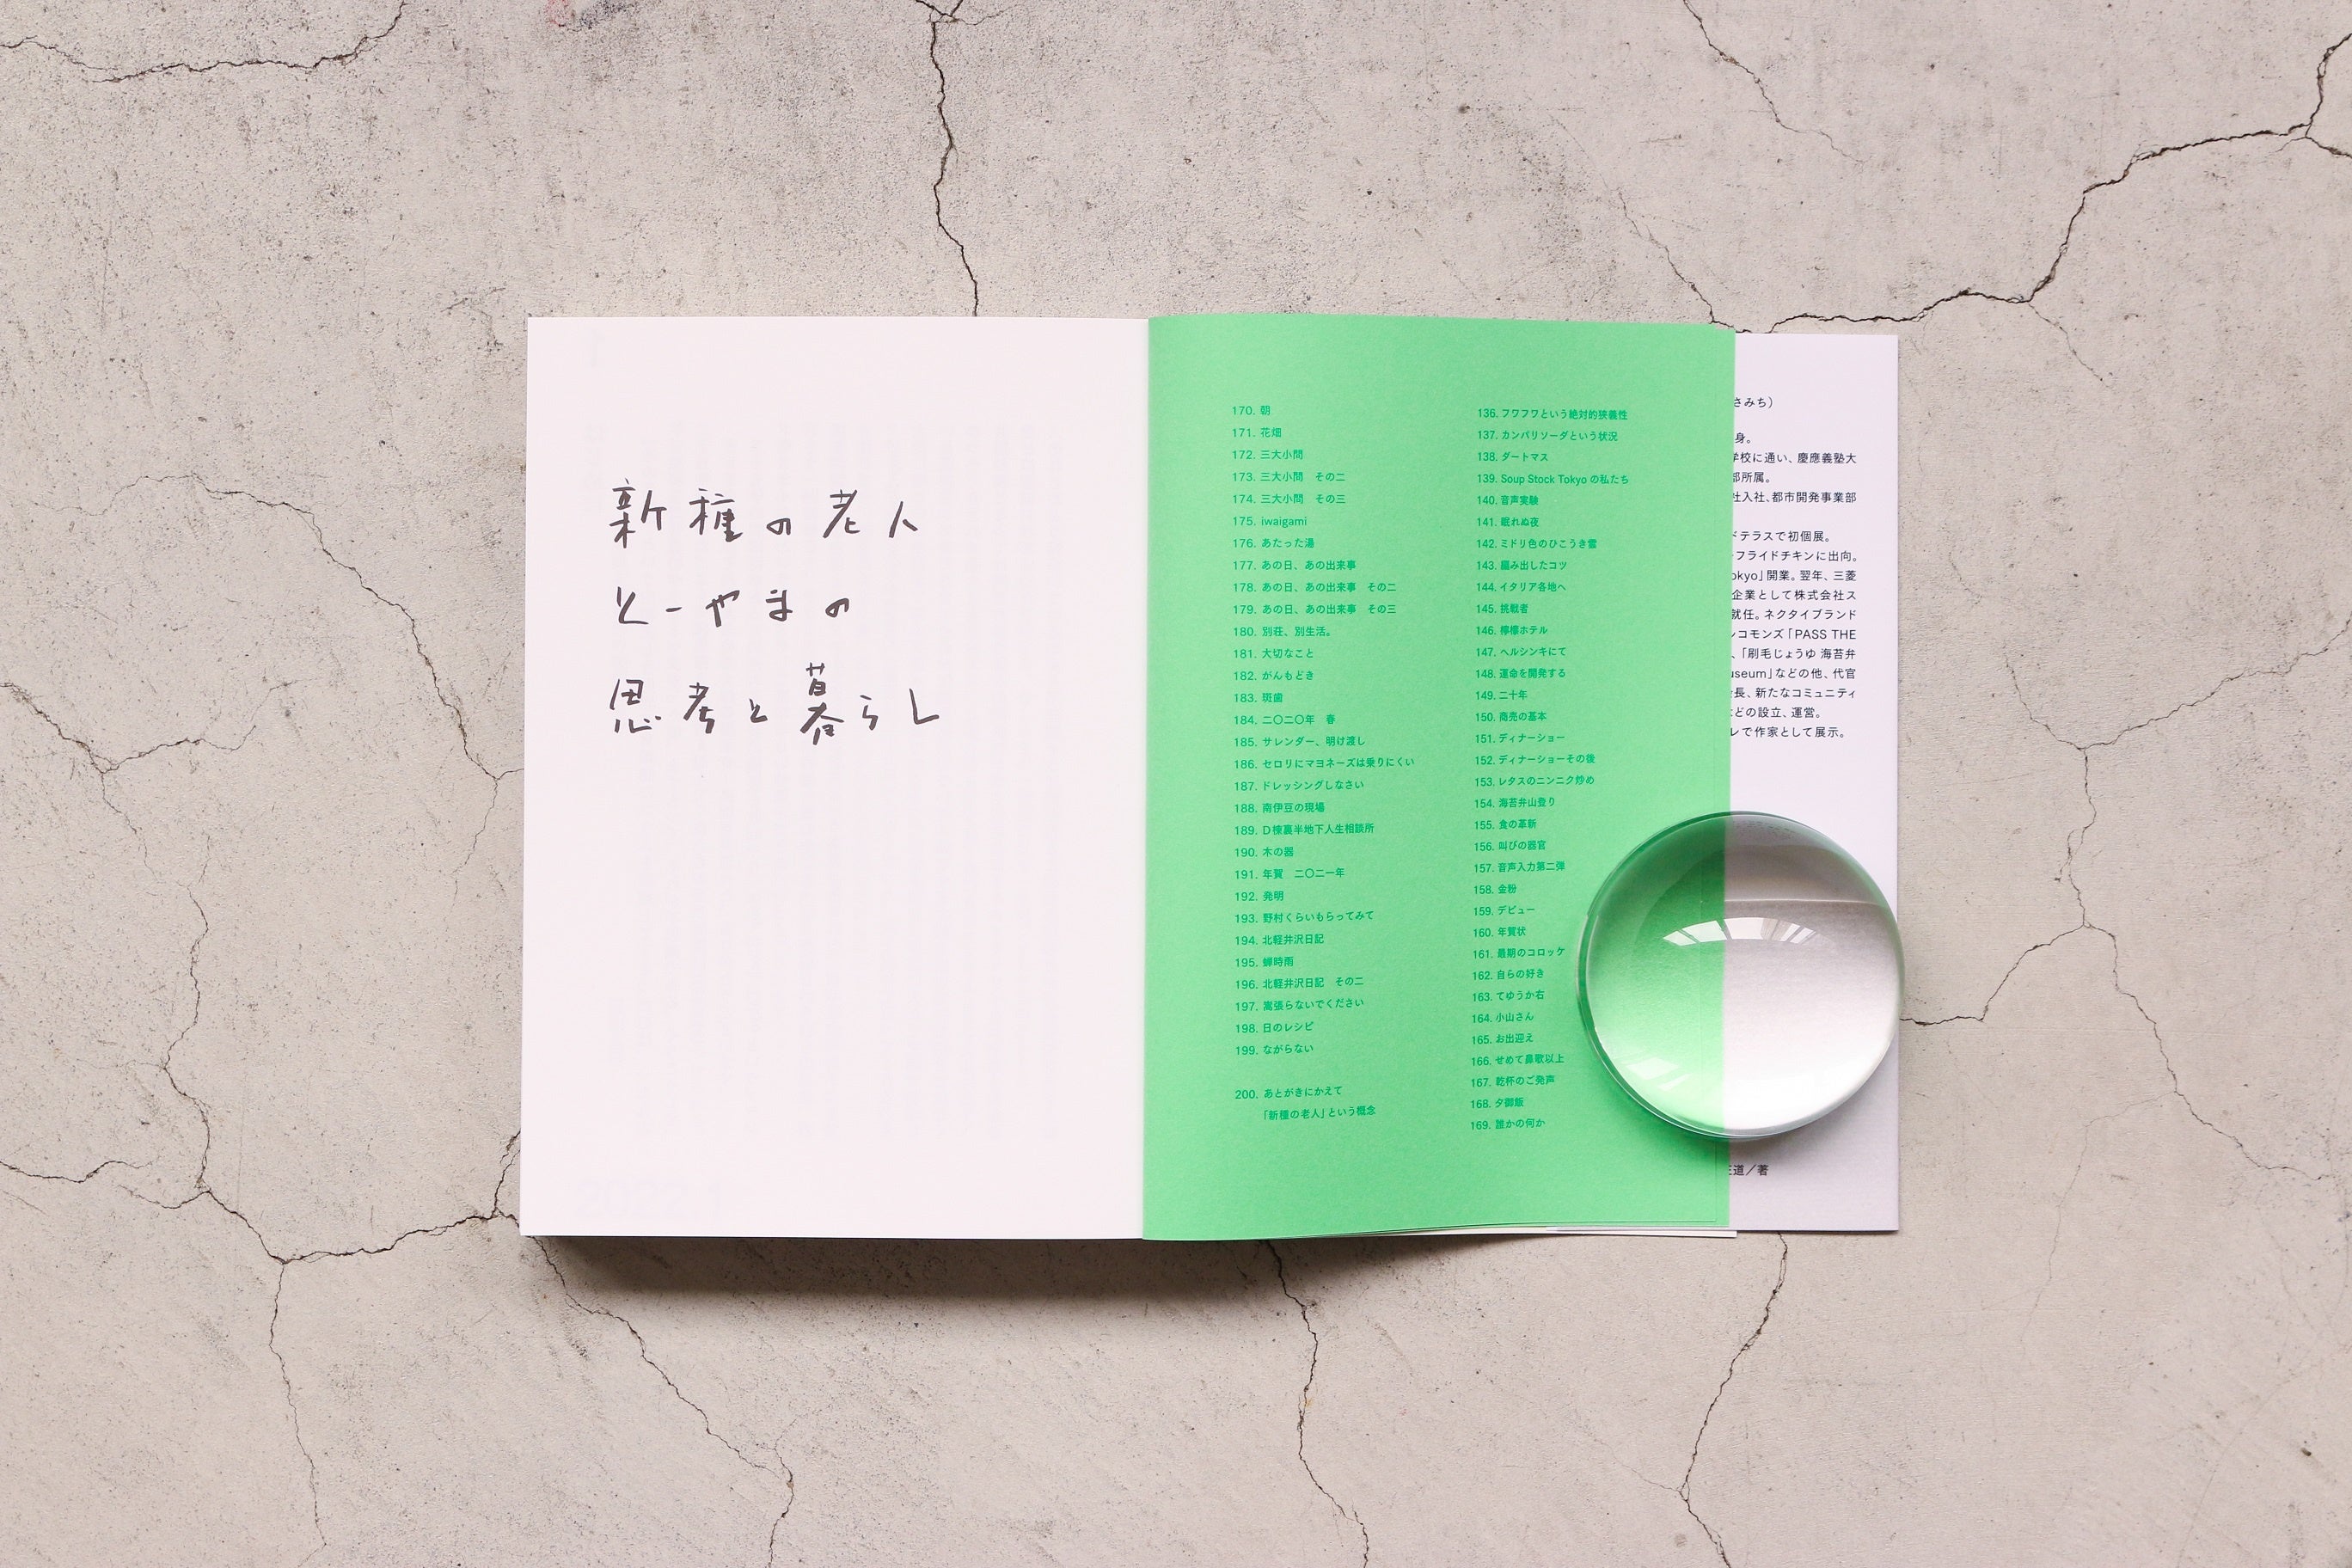 新種の老人
とーやまの
思考と暮らし
170. 朝
171. 花畑
172. 三大小問
173. 三大小問　その二
174. 三大小問　その三
175. iwaigami
176. あたった湯
177. あの日、あの出来事
178. あの日、あの出来事　その二
179. あの日、あの出来事　その三
180. 別荘、別生活。
181. 大切なこと
182. がんもどき
183. 斑歯
184. 二〇二〇年　春
185. サレンダー、明け渡し
186. セロリにマヨネーズは乗りにくい
187. ドレッシングしなさい
188. 南伊豆の現場
189. D棟裏半地下人生相談所
190. 木の器
191. 年賀　二〇二一年
192. 発明
193. 野村くらいもらってみて
194. 北軽井沢日記
195. 蝉時雨
196. 北軽井沢日記　その二
197. 嵩張らないでください
198. 日のレシピ
199. ながらない
200. あとがきにかえて
「新種の老人」という概念
136. フワフワという絶対的狭義性
137. カンパリソーダという状況
138. ダートマス
139. Soup Stock Tokyo の私たち
140. 音声実験
141. 眠れぬ夜
142. ミドリ色のひこうき雲
143. 編み出したコツ
144. イタリア各地へ
145. 挑戦者
146. 檸檬ホテル
147. ヘルシンキにて
148. 運命を開発する
149. 二十年
150. 商売の基本
151. ディナーショー
152. ディナーショーその後
153. レタスのニンニク炒め
154. 海苔弁山登り
155. 食の革新
156. 叫びの器官
157. 音声入力第二弾
158. 金粉
159. デビュー
160. 年賀状
161. 最期のコロッケ
162. 自らの好き
163. てゆうか右
164. 小山さん
165. お出迎え
166. せめて鼻歌以上
167. 乾杯のご発声
168. 夕御飯
169. 誰かの何か
さみち）
身。
学校に通い、慶應義塾大
部所属。
社入社、都市開発事業部
ドテラスで初個展。
フライドチキンに出向。
okyo」開業。翌年、三菱
企業として株式会社ス
就任。ネクタイブランド
コモンズ「PASS THE
、「刷毛じょうゆ 海苔弁
useum」などの他、代官
長、新たなコミュニティ
どの設立、運営。
レで作家として展示。
正道／著